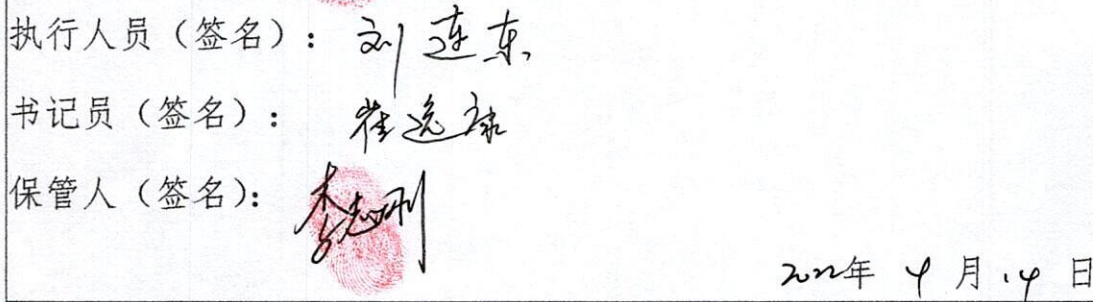 执行人员（签名）：刘连东
书记员（签名）：崔逸康
保管人（签名）：李志刚
2022年 4 月 14 日